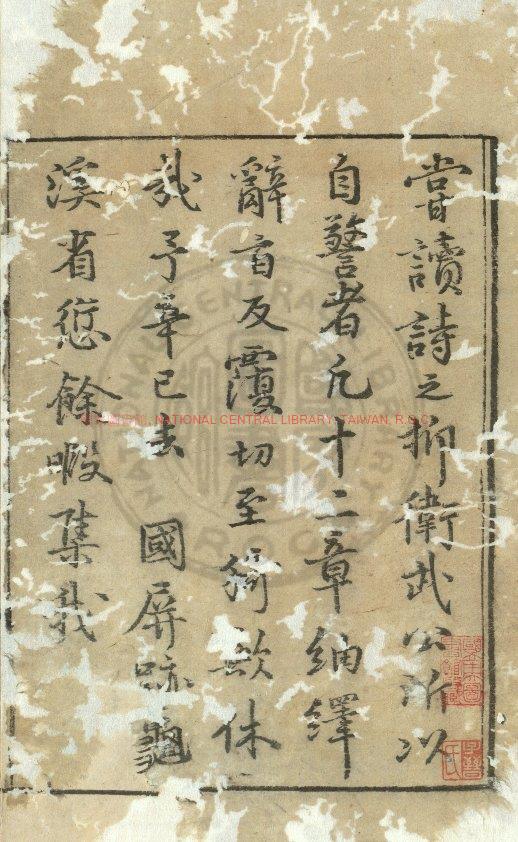 嘗讀詩之抑衛武公所以
自警者凡十二章紬繹
辭旨反覆切至猗歟休
哉予辛巳去 國屏跡龜
溪省愆餘暇集我
NATIONAL CENTRAL LIBRARY, TAIWAN, R.O.C.